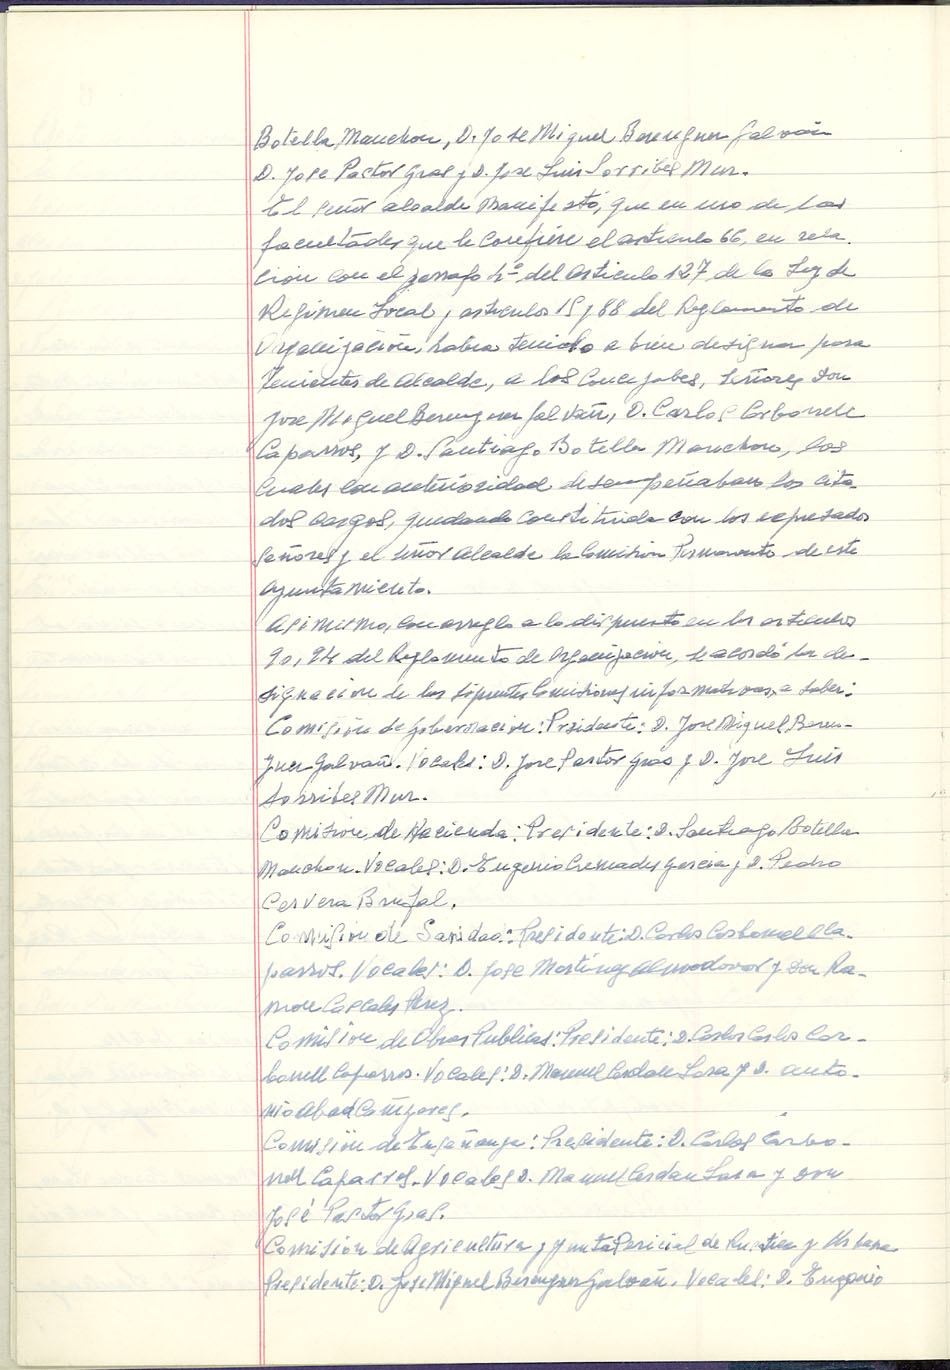 Botella Manchon, D. Jose Miguel Berenguer Galvañ
D. Jose Pastor Gras y D. Jose Luis Sorribes Mur.
El señor alcalde manifestó, que en uso de las
facultades que le confiere el articulo 66, en rela-
ción con el parrafo 4º del articulo 127 de la Ley de
Regimen Local y articulos 15 y 88 del Reglamento de
Organización, habia tenido a bien designar para
Tenientes de Alcalde, a los Concejales, señores Don
Jose Miguel Berenguer Galvañ, D. Carlos Carbonell
Caparros, y D. Santiago Botella Manchon, los
cuales con anterioridad desempeñaban los cita-
dos cargos, quedando constituida con los expresados
señores y el señor Alcalde la Comisión Permanente de este
Ayuntamiento.
Asimismo, con arreglo a lo dispuesto en los articulos
90, 94 del Reglamento de Organización, se acordó la de-
signación de las siguientes Comisiones informativas, a saber:
Comisión de Gobernación: Presidente: D. Jose Miguel Beren-
guer Galvañ. Vocales: D. Jose Pastor Gras y D. Jose Luis
Sorribes Mur.
Comisión de Hacienda: Presidente: D. Santiago Botella
Manchon. Vocales: D. Eugenio Cremades Garcia y D. Pedro
Cervera Brufal.
Comisión de Sanidad: Presidente: D. Carlos Carbonell Ca-
parros. Vocales: D. Jose Martinez Almodovar y Don Ra-
mon Cascales Perez.
Comisión de Obras Publicas: Presidente: D. Carlos Carlos Car-
bonell Caparros. Vocales: D. Manuel Cerdan Lasa y D. Anto-
nio Abad Cañizares.
Comisión de Enseñanza: Presidente: D. Carlos Carbo-
nell Caparros. Vocales D. Manuel Cerdan Lasa y Don
José Pastor Gras.
Comisión de Agricultura y Junta Pericial de Rustica y Urbana
Presidente: D. Jose Miguel Berenguer Galvañ. Vocales: D. Eugenio